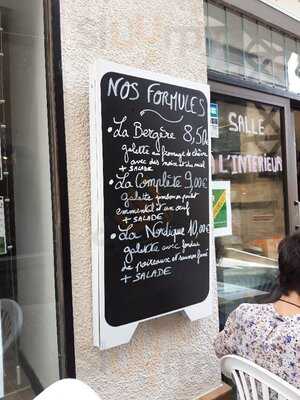 NOS FORMULES
• La Bergère 8,50
galette au fromage de chèvre
avec des noix et du miel
+ SALADE
• La Complète 9,00€
galette jambon poulet
emmental et un oeuf
+ SALADE
• La Nordique 10,00€
galette avec fondue
de poireaux et saumon fumé
+ SALADE
SALLE
A L'INTERIEUR